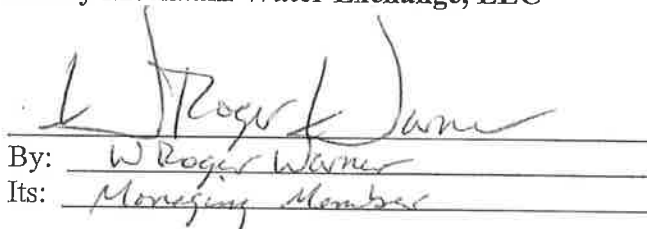 Water Exchange, LLC
W Roger Warner
By: W Roger Warner
Its: Managing Member